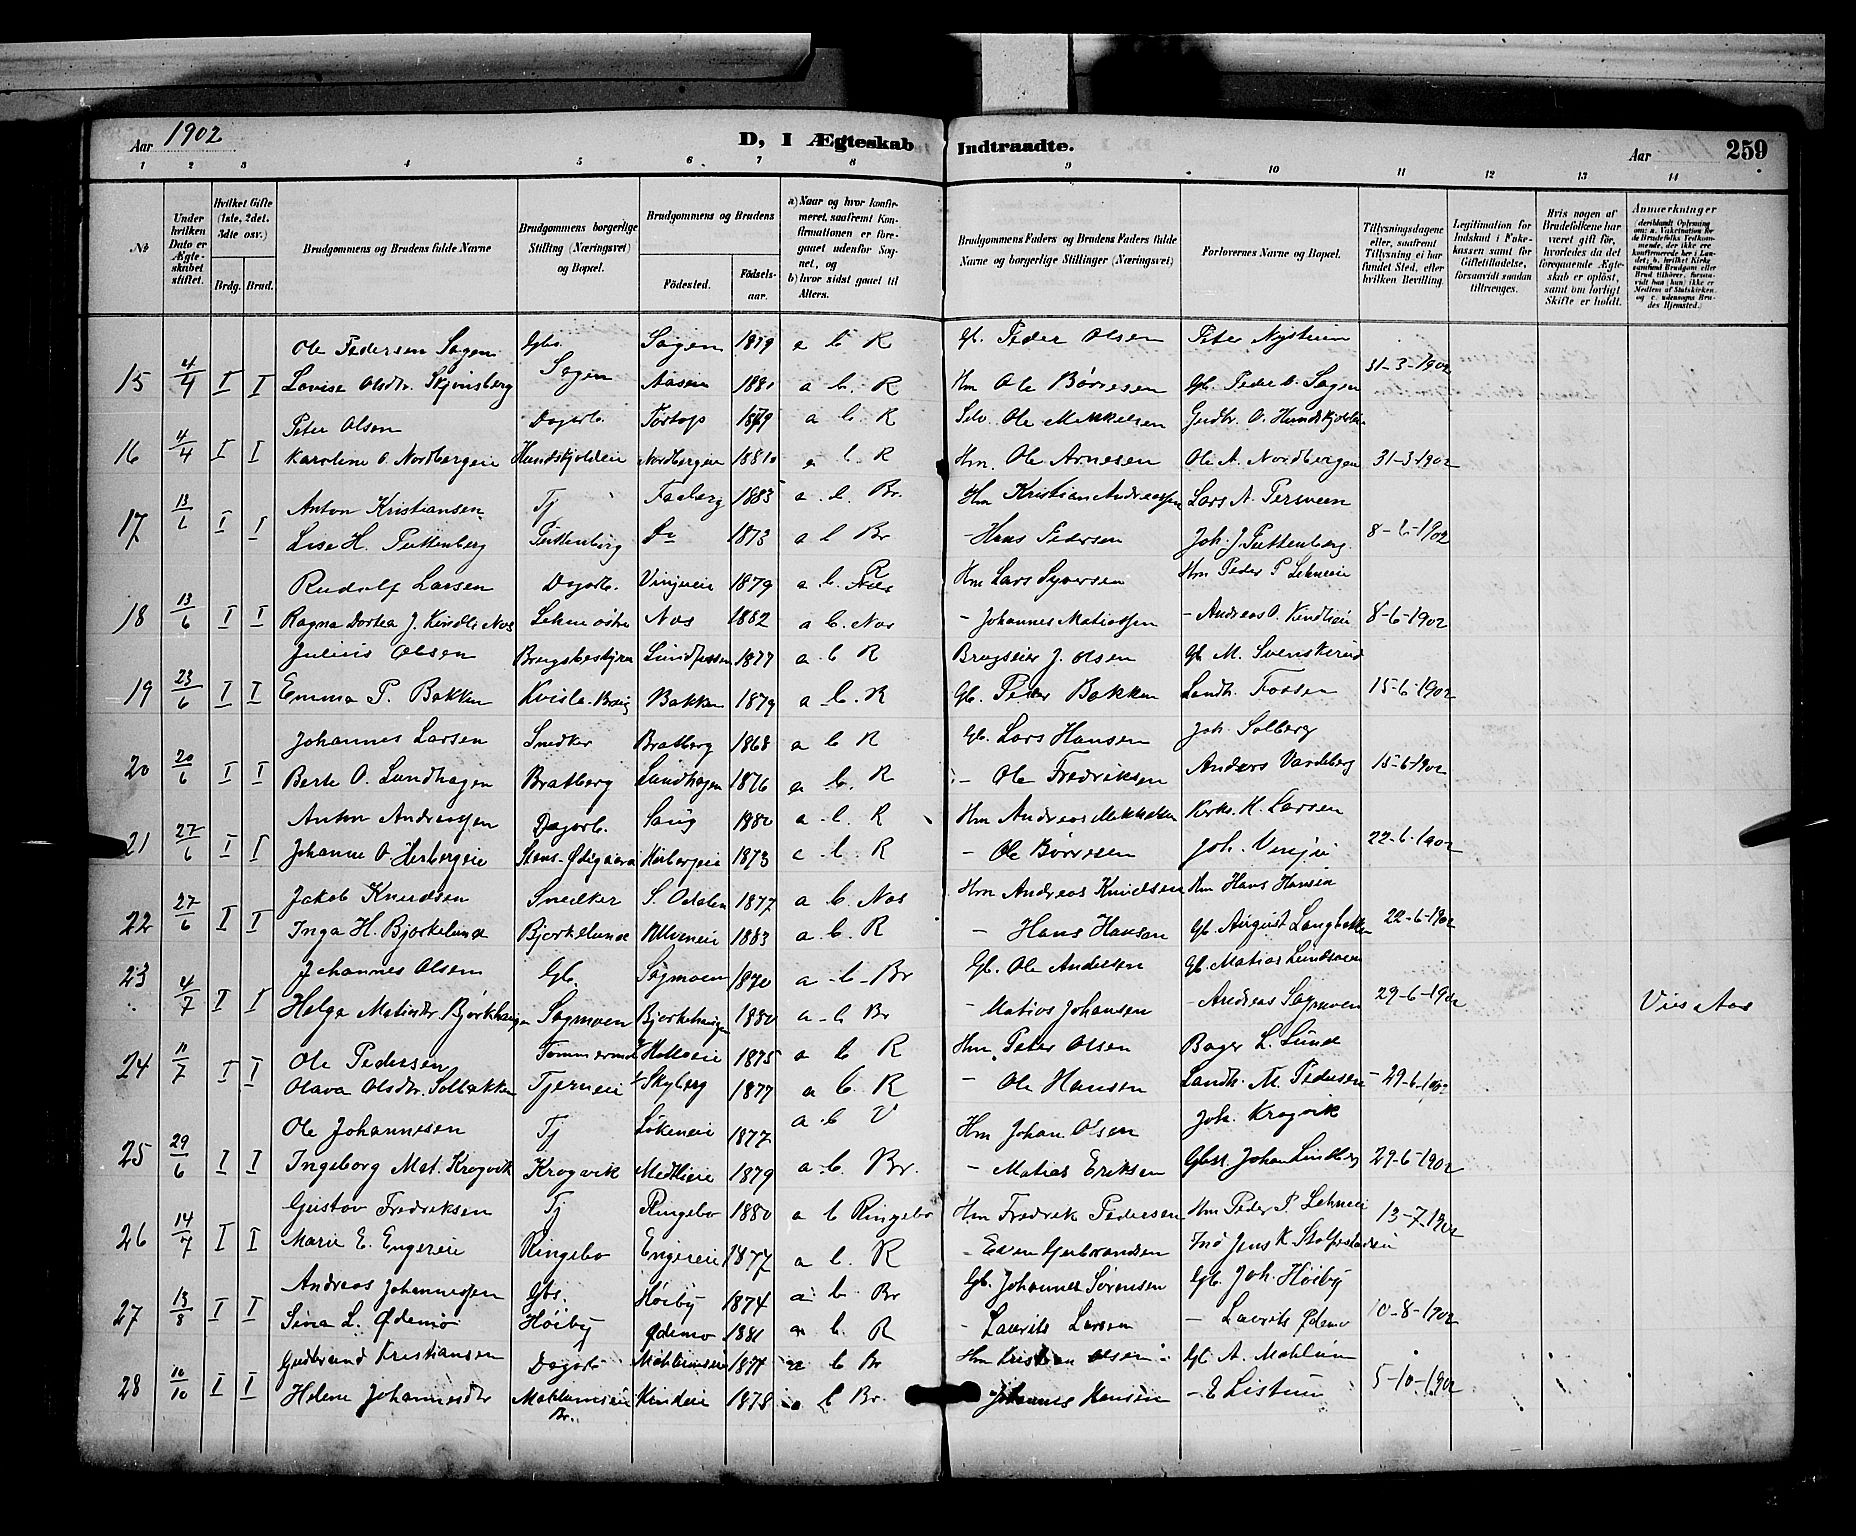 Aar 1902
D, I Ægteskab Indtraadte.
Aar
259
1 2 3 4 5 6 7 8 9 10 11 12 13 14
No
Under hvilken Dato er Ægteskabet stiftet.
Hvilket Gifte (1ste, 2det, 3die osv.)
Brdg. Brud.
Brudgommens og Brudens fulde Navne
Brudgommens borgerlige Stilling (Næringsvei) og Bopæl.
Brudgommens og Brudens
Födested.
Födsels-aar.
a) Naar og hvor konfirmeret, saafremt Konfirmationen er foregaaet udenfor Sognet, og
b) hvor sidst gaaet til Alters.
Brudgommens Faders og Brudens Faders fulde Navne og borgerlige Stillinger (Næringsvei)
Forlovernes Navne og Bopæl.
Tillysningsdagene eller, saafremt Tillysning ei har fundet Sted, efter hvilken Bevilling.
Legitimation for Indskud i Enkekassen samt for Giftetilladelse, forsaavidt saadan tiltrænges.
Hvis nogen af Brudefolkene har været gift för, hvorledes da det foregaaende Ægteskab er oplöst, samt om lovligt Skifte er holdt.
Anmærkninger
Ole Pedersen Sagen Gbs. Sagen 1879 a b R Gb. Peder Olsen Peter Nystuen
15 4/4 I I Lovise Olsdtr. Skjönsberg Sagen Aasen 1881 a b. R Hm Ole Børresen Gb. Peder O. Sagen 31-3-1902
Peter Olsen Dagarb. Tortop 1879 a b R Selv. Ole Mikkelsen Gudbr. O.
16 4/4 I I Karoline O. Nordbergeie Hundskjoldeie Nordbergeie 1881 a b R Hm. Ole Arnesen Ole A. Nordbergen 31-3-1902
Anton Kristiansen Tj Faaberg 1883 a. b. Br. Hm Kristian Andreassen Lars A.
17 13/6 I I Lise H. Puttenberg Puttenberg Do 1873 a b Br - Hans Pedersen Joh. J. Puttenberg. 8-6-1902
Rudolf Larsen Dagarb. Vinjueie 1879 a b. R Hm Lars Syversen Hm Peder P. Lehneeie
18 13/6 I I Ragna Dortea J. Kindli Nos Lehne östre Nos 1882 a b. Nos - Johannes Matiassen - Andreas O. Kindlien 8-6-1902
Julius Olsen Brugsbestyrer Lundfossen 1877 a b R Brugseier J. Olsen Gb M. Svenskerud
19 23/6 I I Emma P. Bakken Kvisla Brug Bakken 1879 a b. R Gb. Peder Bakken Landh. Fossen 15-6-1902
Johannes Larsen Snedker Bratberg 1868 a b R Gb. Lars Hansen Joh. Solberg
20 20/6 I I Berte O. Lundhagen Bratberg Lundhagen 1876 a b. R - Ole Fredriksen Anders Vardeberg 15-6-1902
Anton Andreassen Dagarb. Saug 1880 a b. R Hm Andreas Mikkelsen Kirks. H. Larsen
21 27/6 I I Johanne O. Herbergeie Stens-Ødegaard Herbergeie 1873 a b. R - Ole Börresen Joh. Vinju 22-6-1902
Jakob Knudsen Snedker S. Odalen 1877 a b. Nos Hm Andreas Knudsen Hm Hans Hansen
22 27/6 I I Inga H. Bjørkelund Bjørkelund 1883 a b. R - Hans Hansen Gb. August Langbakken 22-6-1902
23 Johannes Olsen Gb. Sagmoen 1870 a b Br Gb. Ole Andersen Gb. Matias Lundsveen
4/7 I I Helga Matiasdtr Bjørkehaugen Sagmoen Bjørkehaugen 1880 a b Br - Matias Johansen - Andreas Sagmoen 29-6-1902 Vies Aas
Ole Pedersen Tømmermand 1875 a b R Hm Peter Olsen Bager L. Lund
24 11/7 I I Olava Olsdtr. Solbakken Tjerneie Skyberg 1877 a b. R - Ole Hansen Landh. M. Pedersen 29-6-1902
Ole Johannesen Tj Løkeneie 1877 a b V Hm Johan Olsen Joh. Krogvik
25 29/6 I I Ingeborg Mat. Krogvik Krogvik Medlieie 1879 a b. Br. - Matias Eriksen Gbss Johan Lindberg 29-6-1902
Gustav Fredriksen Tj Ringebo 1880 a b Ringebo Hm Fredrik Pedersen Hm Peder P. Lehneie
26 14/7 I I Marie E. Engereie Ringebo Engereie 1877 a b. R - Even Gulbrandsen Ino Jens K. Stolpestadeie 13-7-1902
Andreas Johannessen Gbs. Høiby 1874 a b. Br Gb. Johannes Sørensen Gb. Joh. Høiby
27 13/8 I I Sina L. Ødemo Høiby Ødemo 1881 a b. R - Laurits Larsen - Laurits Ødemo 10-8-1902
Gudbrand Kristiansen Dagarb. Mæhlumseie 1877 a b Br Hm Kristian Olsen Gb A. Mæhlum
28 10/10 I I Helene Johannesdtr Mæhlumseie Br. Kindeie 1878 a b Br. Johannes Hansen - E Listuen 5-10-1902